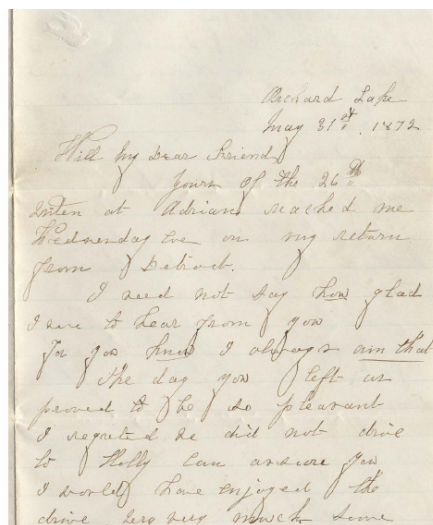 Orchard Lake
May 31st, 1872
Will My Dear Friend
Yours of the 26th
at Adrian reached me
Wednesday Eve on my return
from Detroit.
I need not say how glad
I were to hear from you
for you know I always am that
The day you left us
proved to be so pleasant
I regreted we did not drive
to Holly can assure you
I would have enjoyed the
drive very very much some